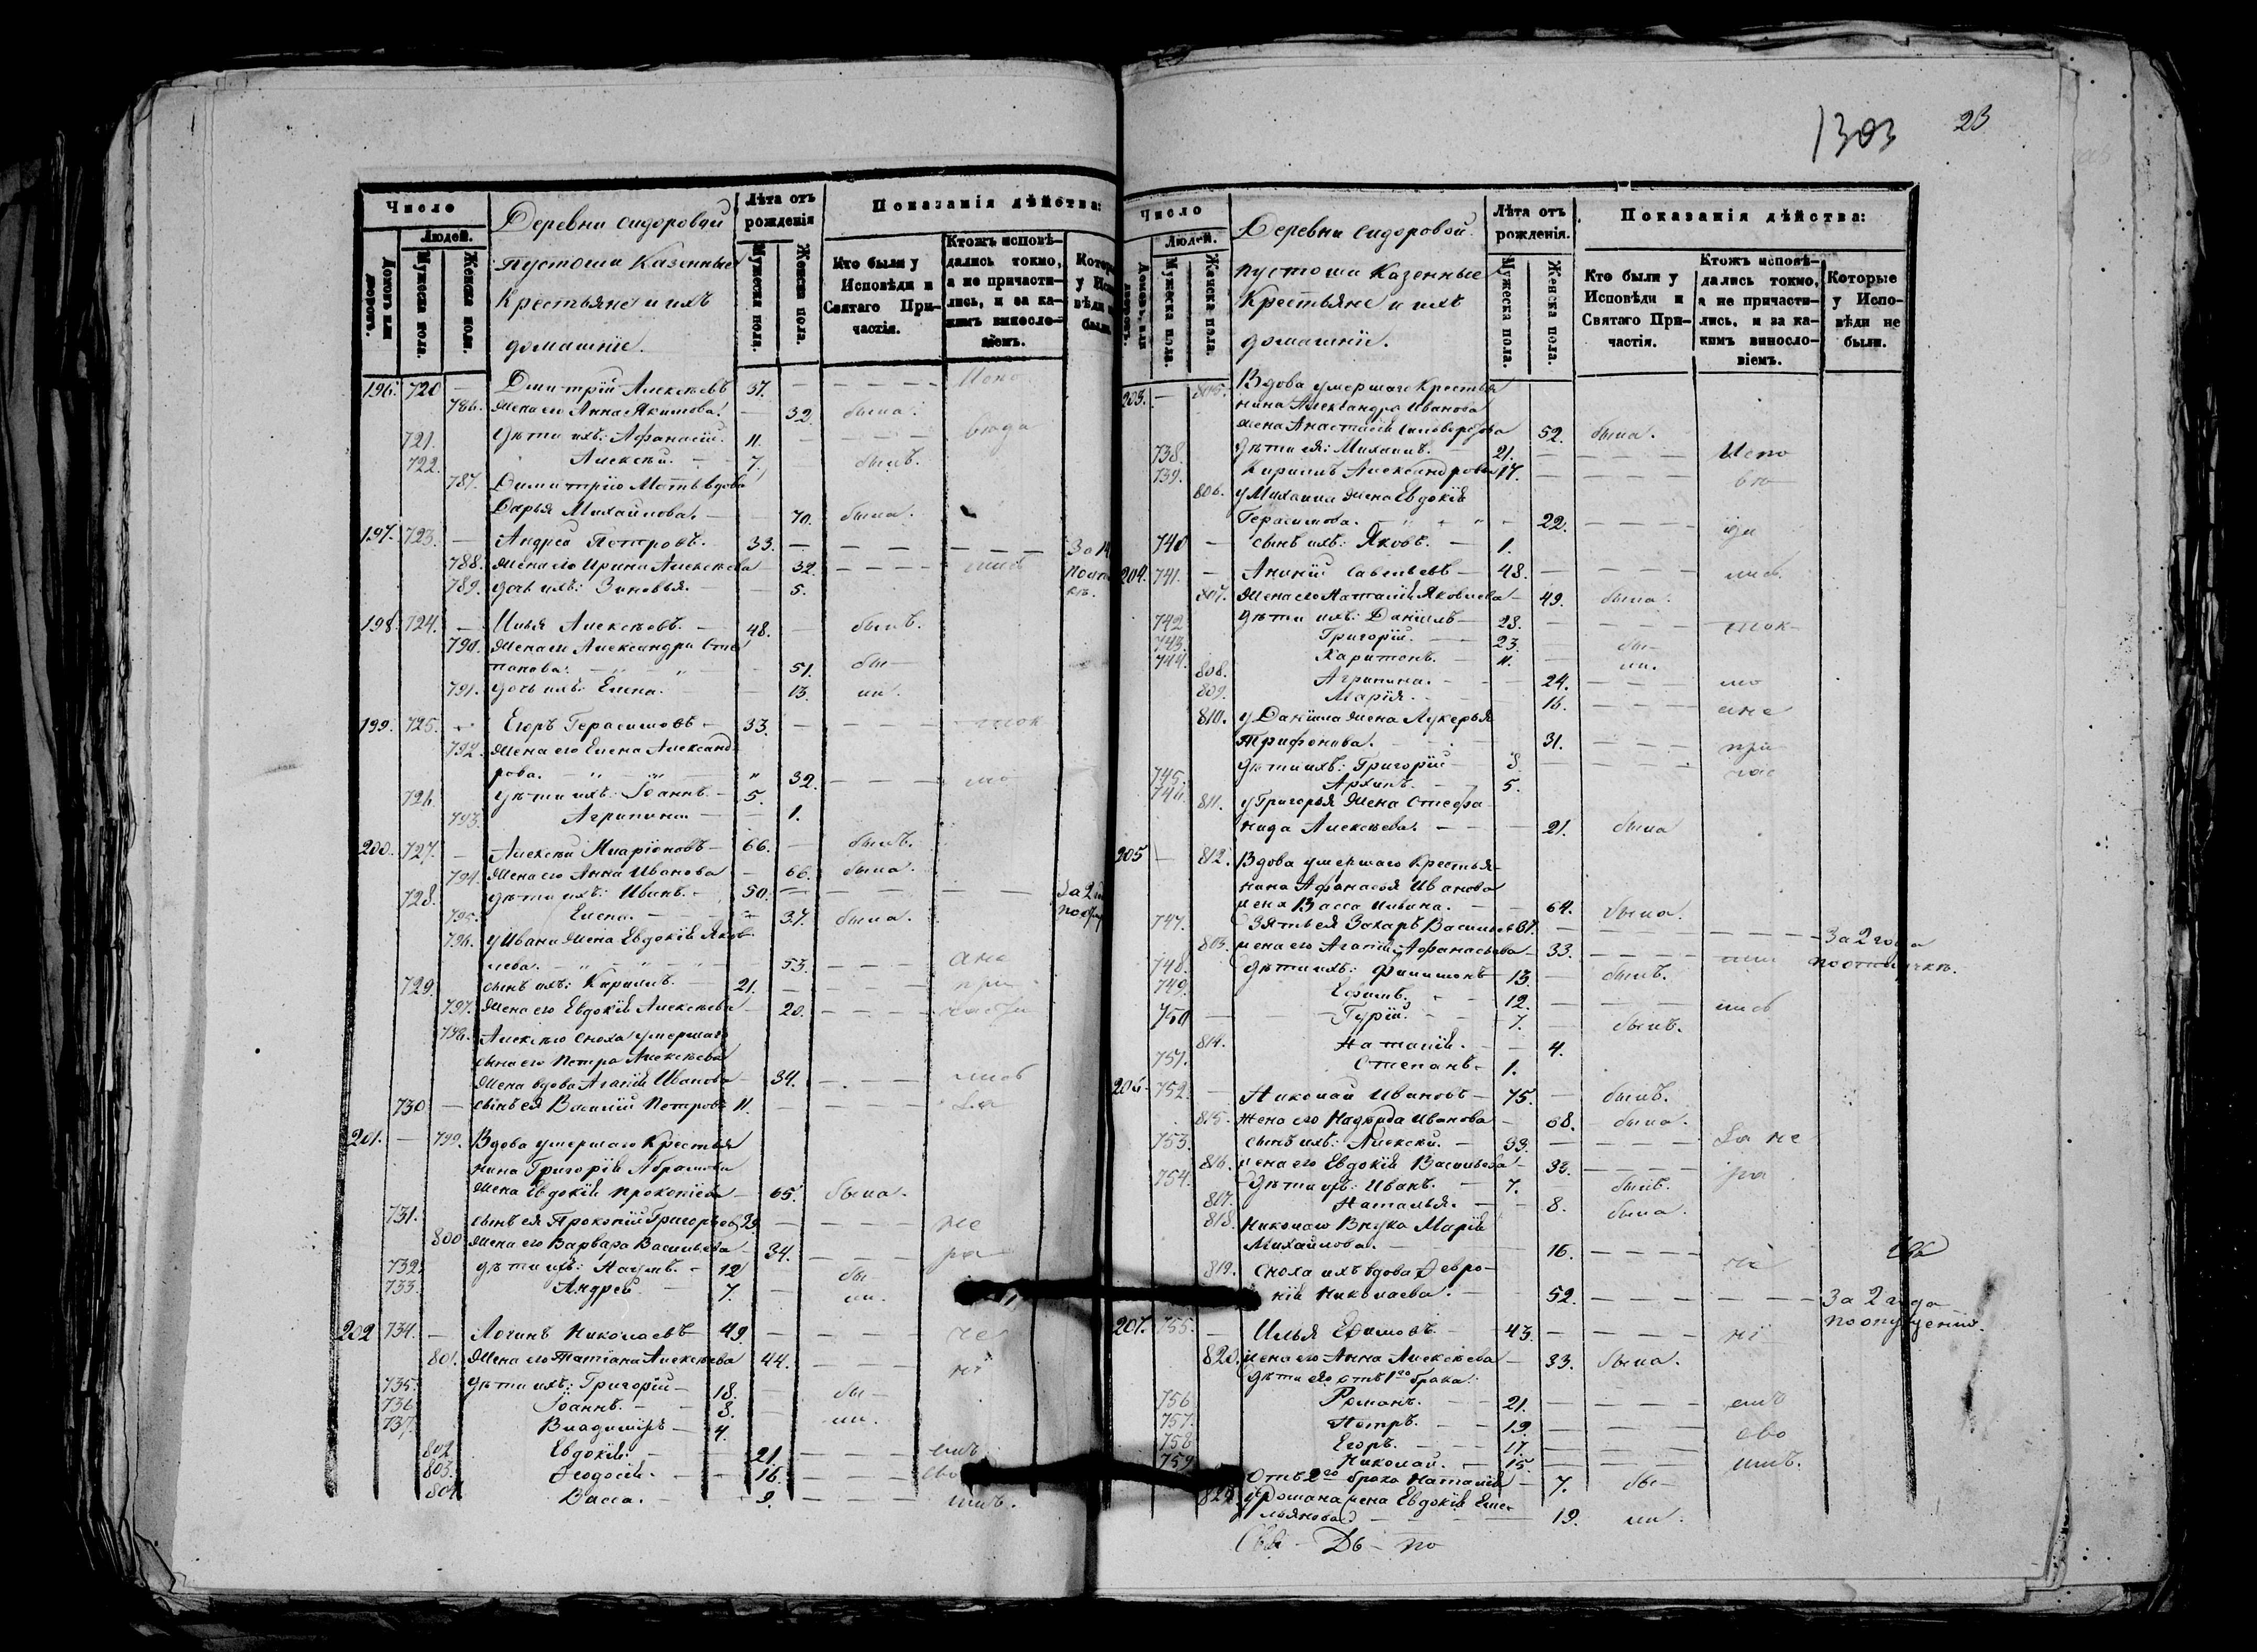 1303 23
Число
Деревни Сидоровой
Лѣта отъ рожденія
Показанія дѣйства:
Людей.
Домовъ или дворовъ.
Мужеска пола.
Женска пола.
пустоши Казенные
Крестьяне и ихъ
домашніе.
Мужеска пола.
Женска пола.
Кто были у Исповѣди и Святаго Причастія.
Ктожъ исповѣ-
дались токмо,
а не причасти-
лись, и за ка-
кимъ винosло-
віемъ.
196. 720 — Дмитрій Алексѣевъ 37. —
786. жена его Анна Якимова. — 32. была.
721. дѣти ихъ: Афанасій. 11.
722. Алексѣй. — 7. былъ.
787. Димитрію Мать вдова
Дарья Михайлова. — 70. была.
197. 723. — Андрей Петровъ. 33. —
788. жена его Ирина Алексѣева — 32.
789. дочь ихъ: Зиновья. — 5.
198. 724. — Илья Алексѣевъ. — 48. былъ.
790. жена его Александра Сте
панова. — 51. бы—
791. дочь ихъ: Елена. — 13. ли.
199. 725. — Егоръ Герасимовъ — 33. — ток
792. жена его Елена Александ-
рова. — 32. мо
726. дѣти ихъ: Іоаннъ. — 5.
793. Агрипина — 1.
200. 727. — Алексѣй Иларіоновъ — 66. — былъ.
794. жена его Анна Иванова — 66. была.
728. дѣти ихъ: Иванъ. — 50. —
795. Елена. — 37. была.
796. у Ивана жена Евдокія Яков-
лева. — 53. ане
729. сынъ ихъ: Кирилъ. — 21. при
797. жена его Евдокія Алексѣева — 20.
798. Алексѣю сноха умершаго
сына его Петра Алексѣева
жена вдова Агафія Иванова — 34.
730 — сынъ ея Василій Петровъ 11.
201. — 799. Вдова умершаго Крестья
нина Григорія Абрамова
жена Евдокія Прокопіева — 65. была.
731. сынъ ея Прокопій Григорьев 39. не
800 жена его Варвара Васильева — 34. ра
732. дѣти ихъ: Наумъ. — 12 бы
733. Андрей — 7. ли.
202 734. — Логинъ Николаевъ 49 — че
801. жена его Татіана Алексѣева 44. ні
735. дѣти ихъ: Григорій — 18. бы—
736 Іоаннъ. — 8. ли.
737. Владиміръ — 4.
802. Евдокія. — 21.
803. Ѳеодосія. — 16.
804 Васса. — 9.
Число
Деревни Сидоровой
Лѣта отъ рожденія.
Показанія дѣйства:
Людей.
Мужеска пола.
Женска пола.
пустоши Казенные
Крестьяне и ихъ
домашніе.
Мужеска пола.
Женска пола.
Кто были у Исповѣди и Святаго Причастія.
Ктожъ исповѣ-
дались токмо,
а не причасти-
лись, и за ка-
кимъ винosло-
віемъ.
Которые у Исповѣди не были.
203. — 805. Вдова умершаго Крестья
нина Александра Иванова
жена Анастасія 52. была.
738. дѣти ея: Михаилъ. 21. Испо
739. Кирилъ Александровъ 17. вѣ
806. у Михаила жена Евдокія
Герасимова. 22.
740 — сынъ ихъ: Яковъ. — 1.
204. 741. — Ананій Савельевъ — 48.
807. жена его Наталія Яковлева — 49. была.
742 дѣти ихъ: Даніилъ — 28. ток-
743. Григорій. — 23. бы—
744. Харитонъ. — 11. ли.
808. Агрипина. — 24. мо
809. Марія. — 16. ане
810. у Даніила жена Лукерья
Трифонова. 31. при
745. дѣти ихъ: Григорій — 8. час
746. Архипъ. — 5.
811. у Григорья жена Стефа-
нида Алексѣева. — 21. была
205 — 812. Вдова умершаго Крестья-
нина Афанасія Иванова
жена Васса Ильина. — 64. была.
747. Зять ея Захаръ Васильев 37. — За 2 года
жена его Агапія Афанасьева — 33. по отлучкѣ.
748. дѣти ихъ: Филимонъ — 13. былъ.
749. Ефимъ. — 12.
750 Гурій. — 7. былъ.
814. Наталія. — 4.
751. Степанъ. 1.
206. 752. — Николай Ивановъ — 75. — былъ.
815. жена его Надежда Иванова — 68. была.
753. сынъ ихъ: Алексѣй. — 33. за не
816. жена его Евдокія Васильева — 33. ра
754. дѣти ихъ: Иванъ. — 7. былъ.
817. Наталья. — 8. была.
818. Николаю Внука Марія
Михайлова. — 16. че
819. Сноха ихъ вдова Февро-
нія Николаева. — 52. За 2 года
по опущенію.
207. 755. — Илья Ефимовъ. — 43. ні
820. жена его Анна Алексѣева — 33. была.
Дѣти его отъ 1го брака:
756 Романъ. — 21.
757. Петръ. — 19. ево
758 Егоръ. — 17.
759 Николай. — 15.
Отъ 2го брака Наталія — 7. бы—
822 у Романа жена Евдокія Еме-
льянова — 19. ли.